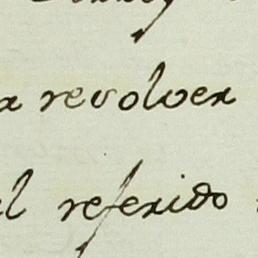 revolver
el referido